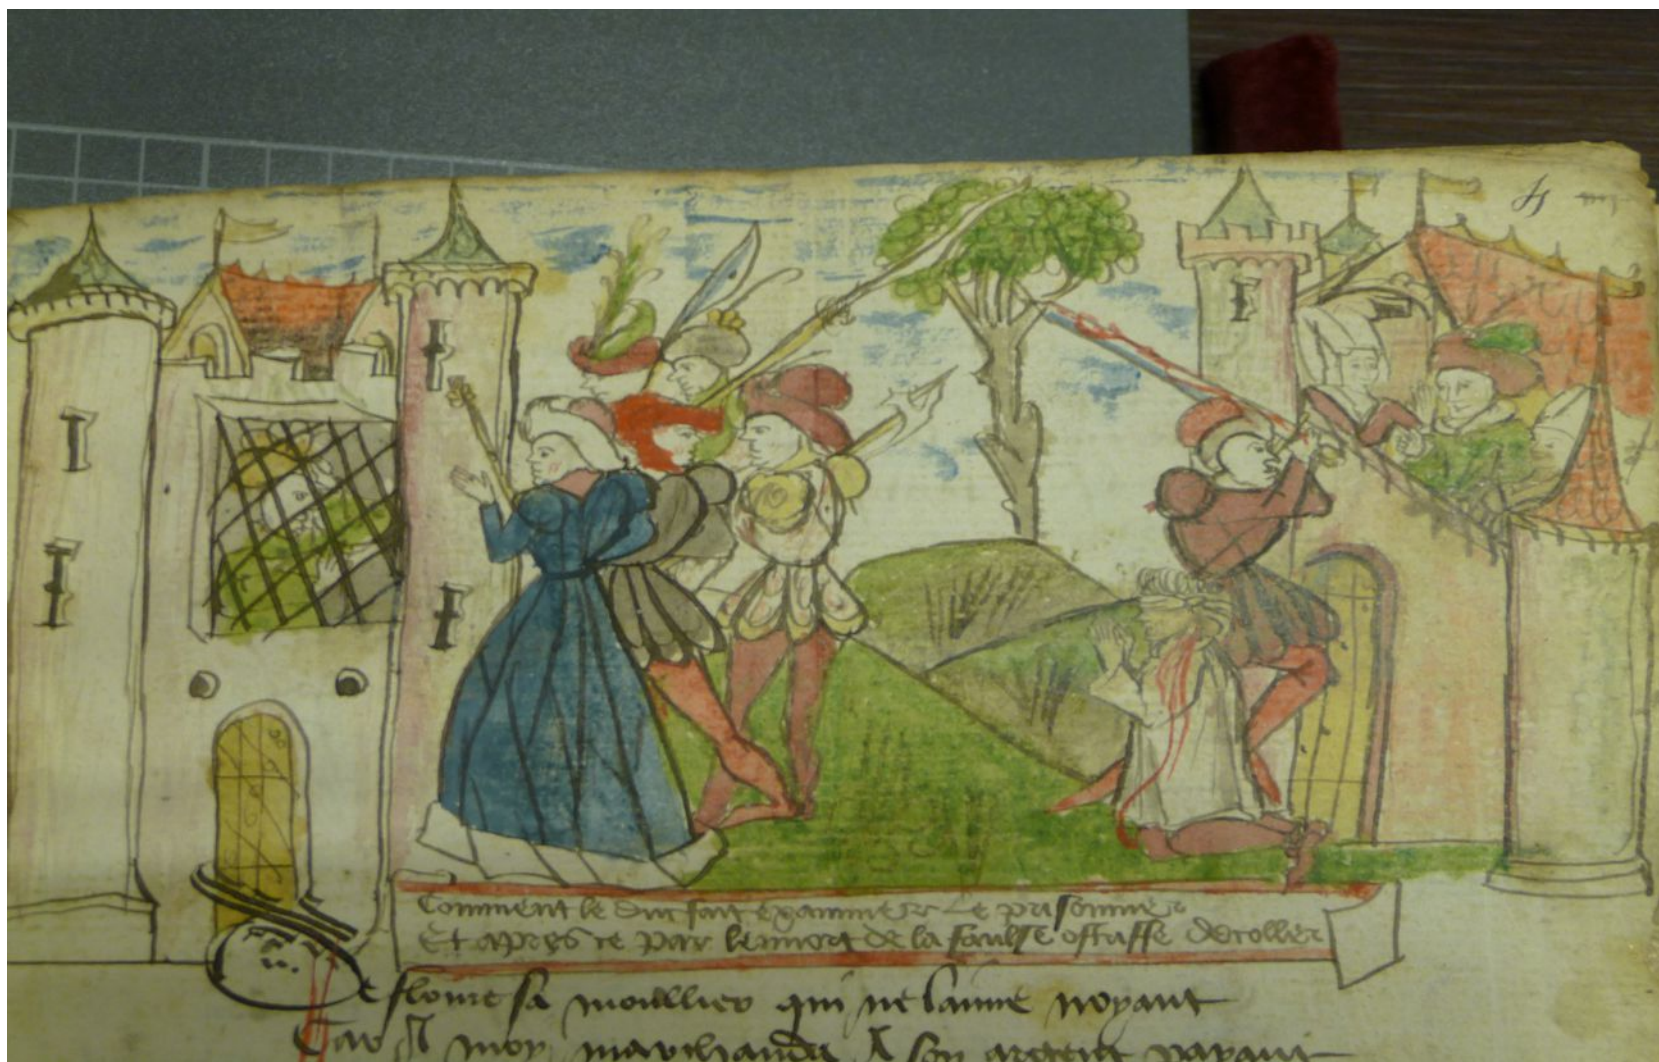 Comment le duc fait examiner le prisonnier
Et apres ce par lenuort de la faulse ostesse decoller
e flouressa moullier qui ne laime noyant
Car Il moy marchanda A son argent payant